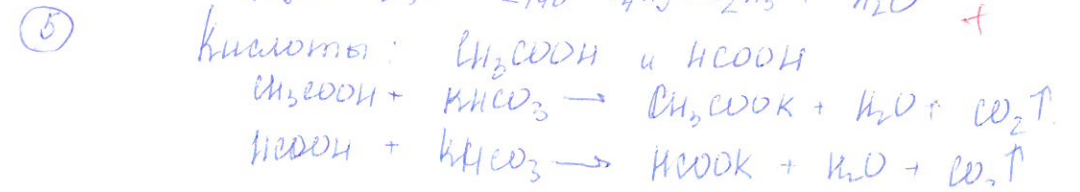 5
Кислоты: CH₃COOH и HCOOH
CH₃COOH + KHCO₃ → CH₃COOK + H₂O + CO₂↑
HCOOH + KHCO₃ → HCOOK + H₂O + CO₂↑